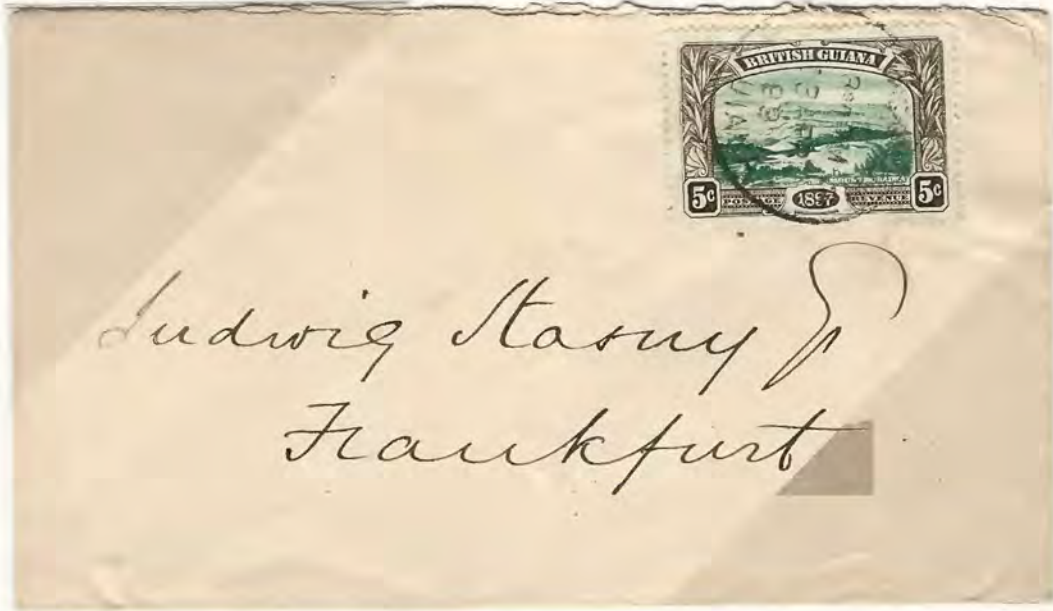 BRITISH GUIANA
5c POSTAGE 1897 REVENUE 5c
Ludwig Stasny
Frankfurt